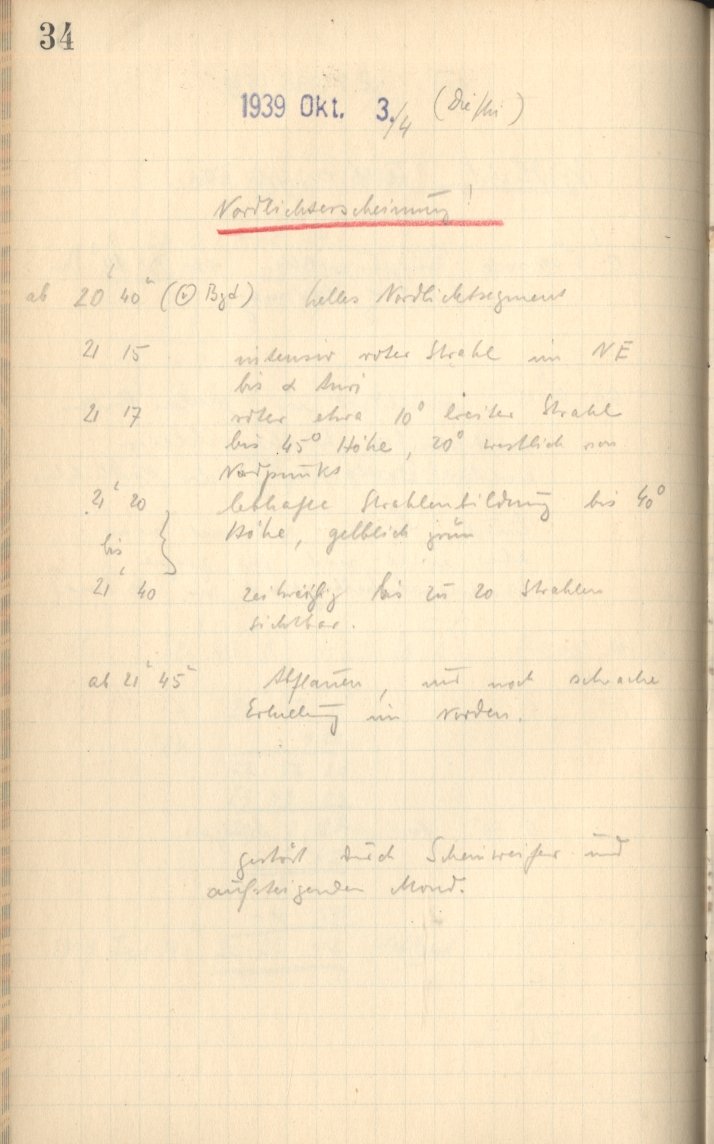 34
1939 Okt. 3./4 (Die/Mi)
Nordlichterscheinung!
ab 20 40 (⊙ Bgd) helles Nordlichtsegment
21 15 intensiv roter Strahl im NE
bis α Auri
21 17 roter etwa 10° breiter Strahl
bis 45° Höhe, 20° westlich von
Nordpunkt
21 20 lebhafte Strahlenbildung bis 40°
bis Höhe, gelblich grün
21 40 zeitweilig bis zu 20 Strahlen
sichtbar.
ab 21 45 Abflauen, nur noch schwache
Erhellung im Norden.
gestört durch Scheinwerfer und
aufsteigenden Mond.